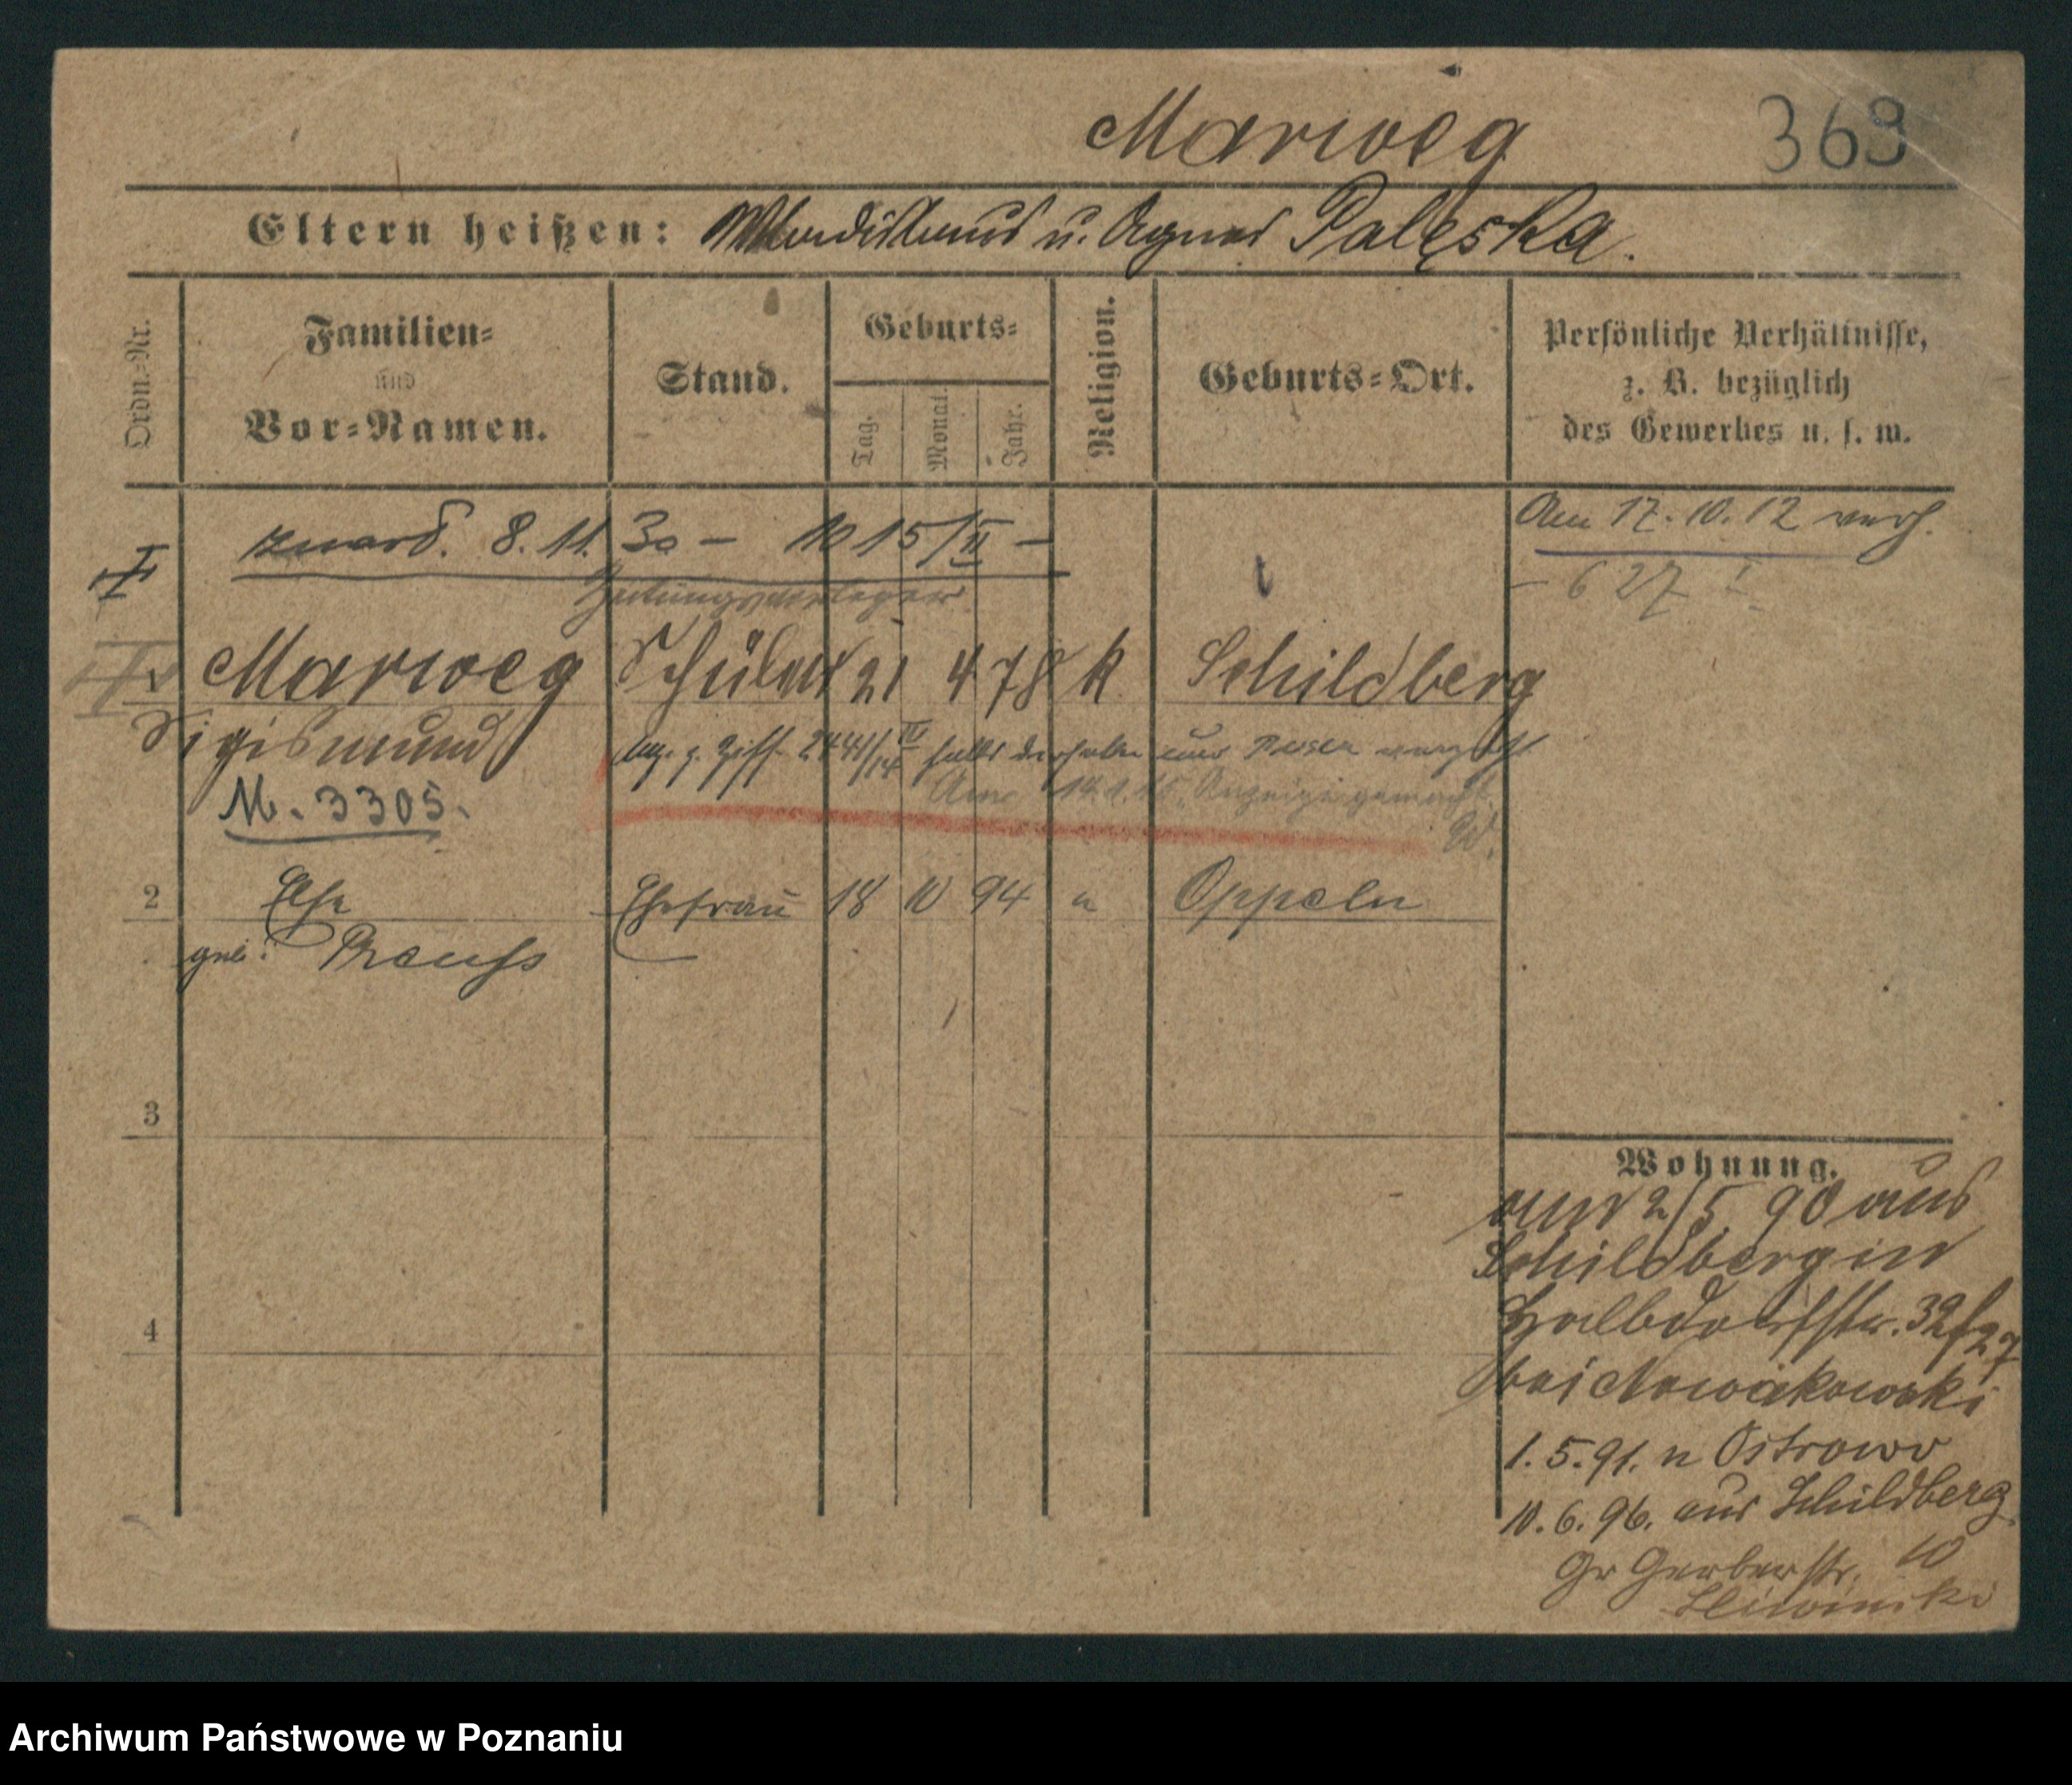 Marweg 369
Eltern heißen: Wladislaus u. Agnes Palęska.
Ordn.-Nr.
Familien- und Vor-Namen.
Stand.
Geburts-
Tag. Monat. Jahr.
Religion.
Geburts-Ort.
Persönliche Verhältnisse,
z. B. bezüglich
des Gewerbes u. s. w.
8. 11. 30 – 10 15/II –
Am 17. 10. 12 verh.
– 627 !
Zeitungsverleger
1 Marweg Schüler 21 4 78 k Schildberg
Sigismund
falls derselbe aus Posen
M. 3305.
Am 14.1.15. Anzeige gemacht.
W.
2 Else Ehefrau 18 10 94 " Oppeln
geb. Preuß
3
4
Wohnung.
2/5 90 aus
Schildberg in
Halbdorfstr. 32/27
bei Nowakowski
1. 5. 91. n Ostrowo
10. 6. 96. aus Schildberg
Gr Gerberstr. 10
Archiwum Państwowe w Poznaniu